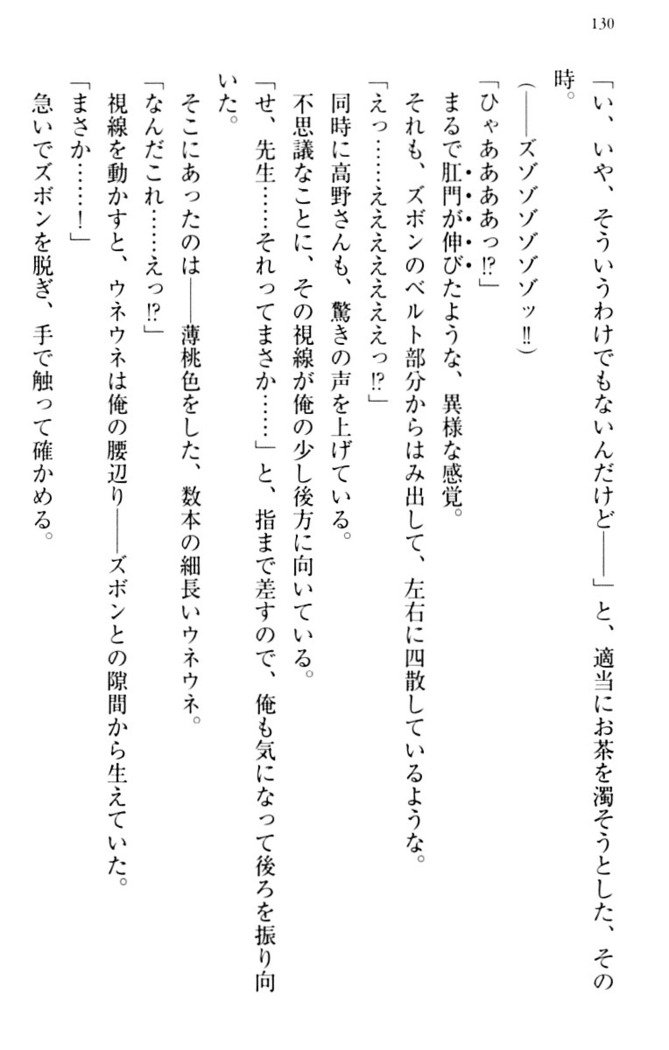 130
「い、いや、そういうわけでもないんだけど――」と、適当にお茶を濁そうとした、その
時。
(――ズゾゾゾゾゾッ!!)
「ひゃああああっ!?」
まるで肛門が伸びたような、異様な感覚。
それも、ズボンのベルト部分からはみ出して、左右に四散しているような。
「えっ……えええええええっ!?」
同時に高野さんも、驚きの声を上げている。
不思議なことに、その視線が俺の少し後方に向いている。
「せ、先生……それってまさか……」と、指まで差すので、俺も気になって後ろを振り向
いた。
そこにあったのは――薄桃色をした、数本の細長いウネウネ。
「なんだこれ……えっ!?」
視線を動かすと、ウネウネは俺の腰辺り――ズボンとの隙間から生えていた。
「まさか……!」
急いでズボンを脱ぎ、手で触って確かめる。